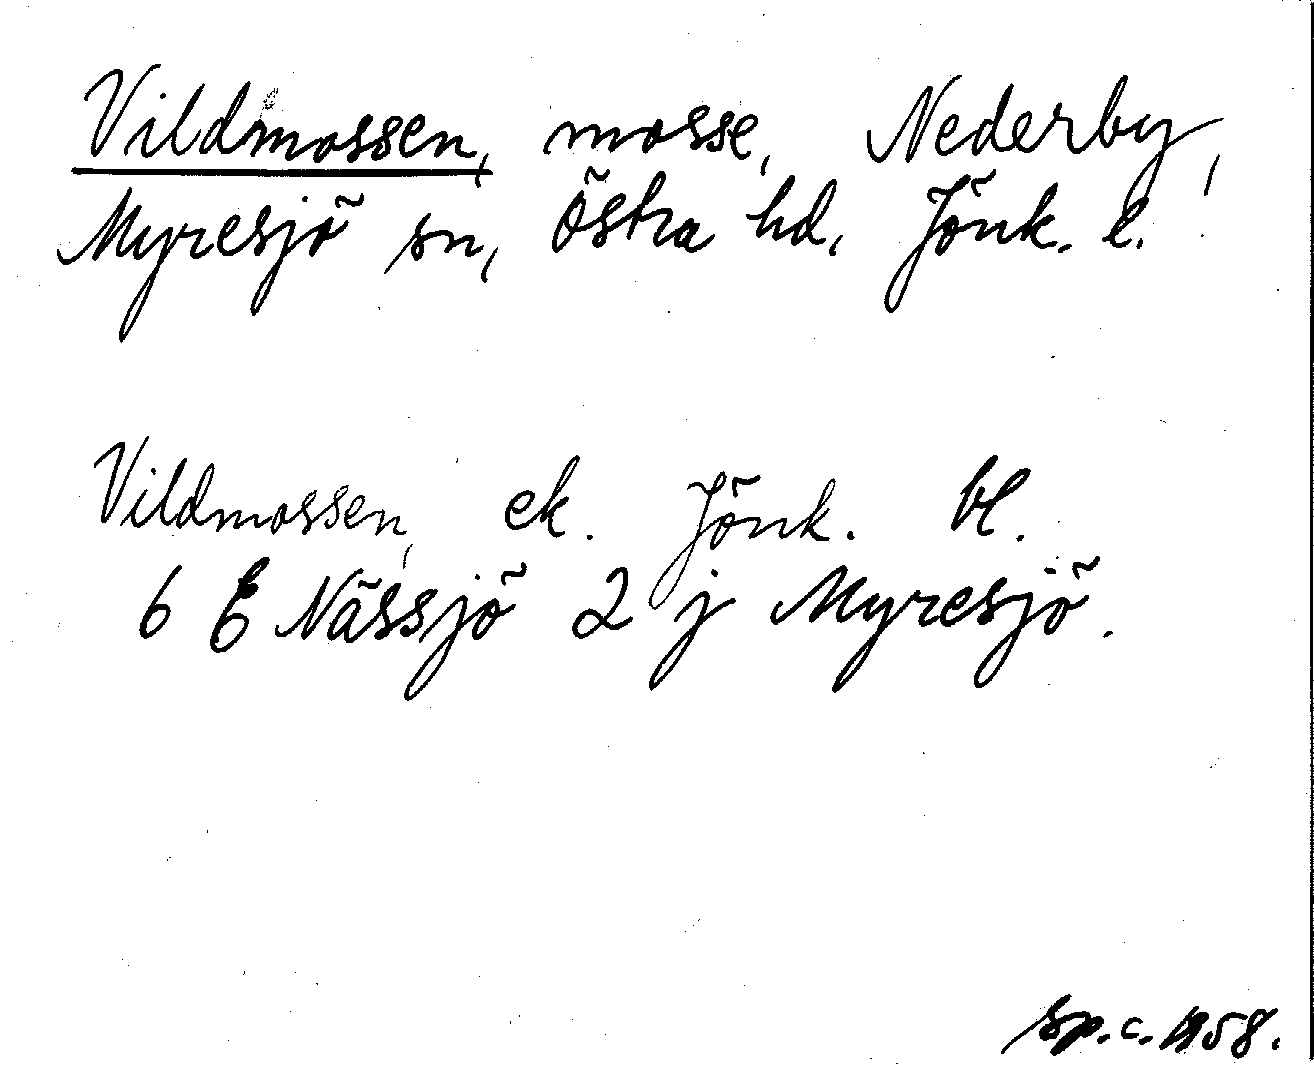 Vildmossen, mosse, Nederby,
Myresjö sn, Östra hd, Jönk. l.
Vildmossen, ek. Jönk. bl.
6 E Nässjö 2 j Myresjö.
Sp. c. 1958.